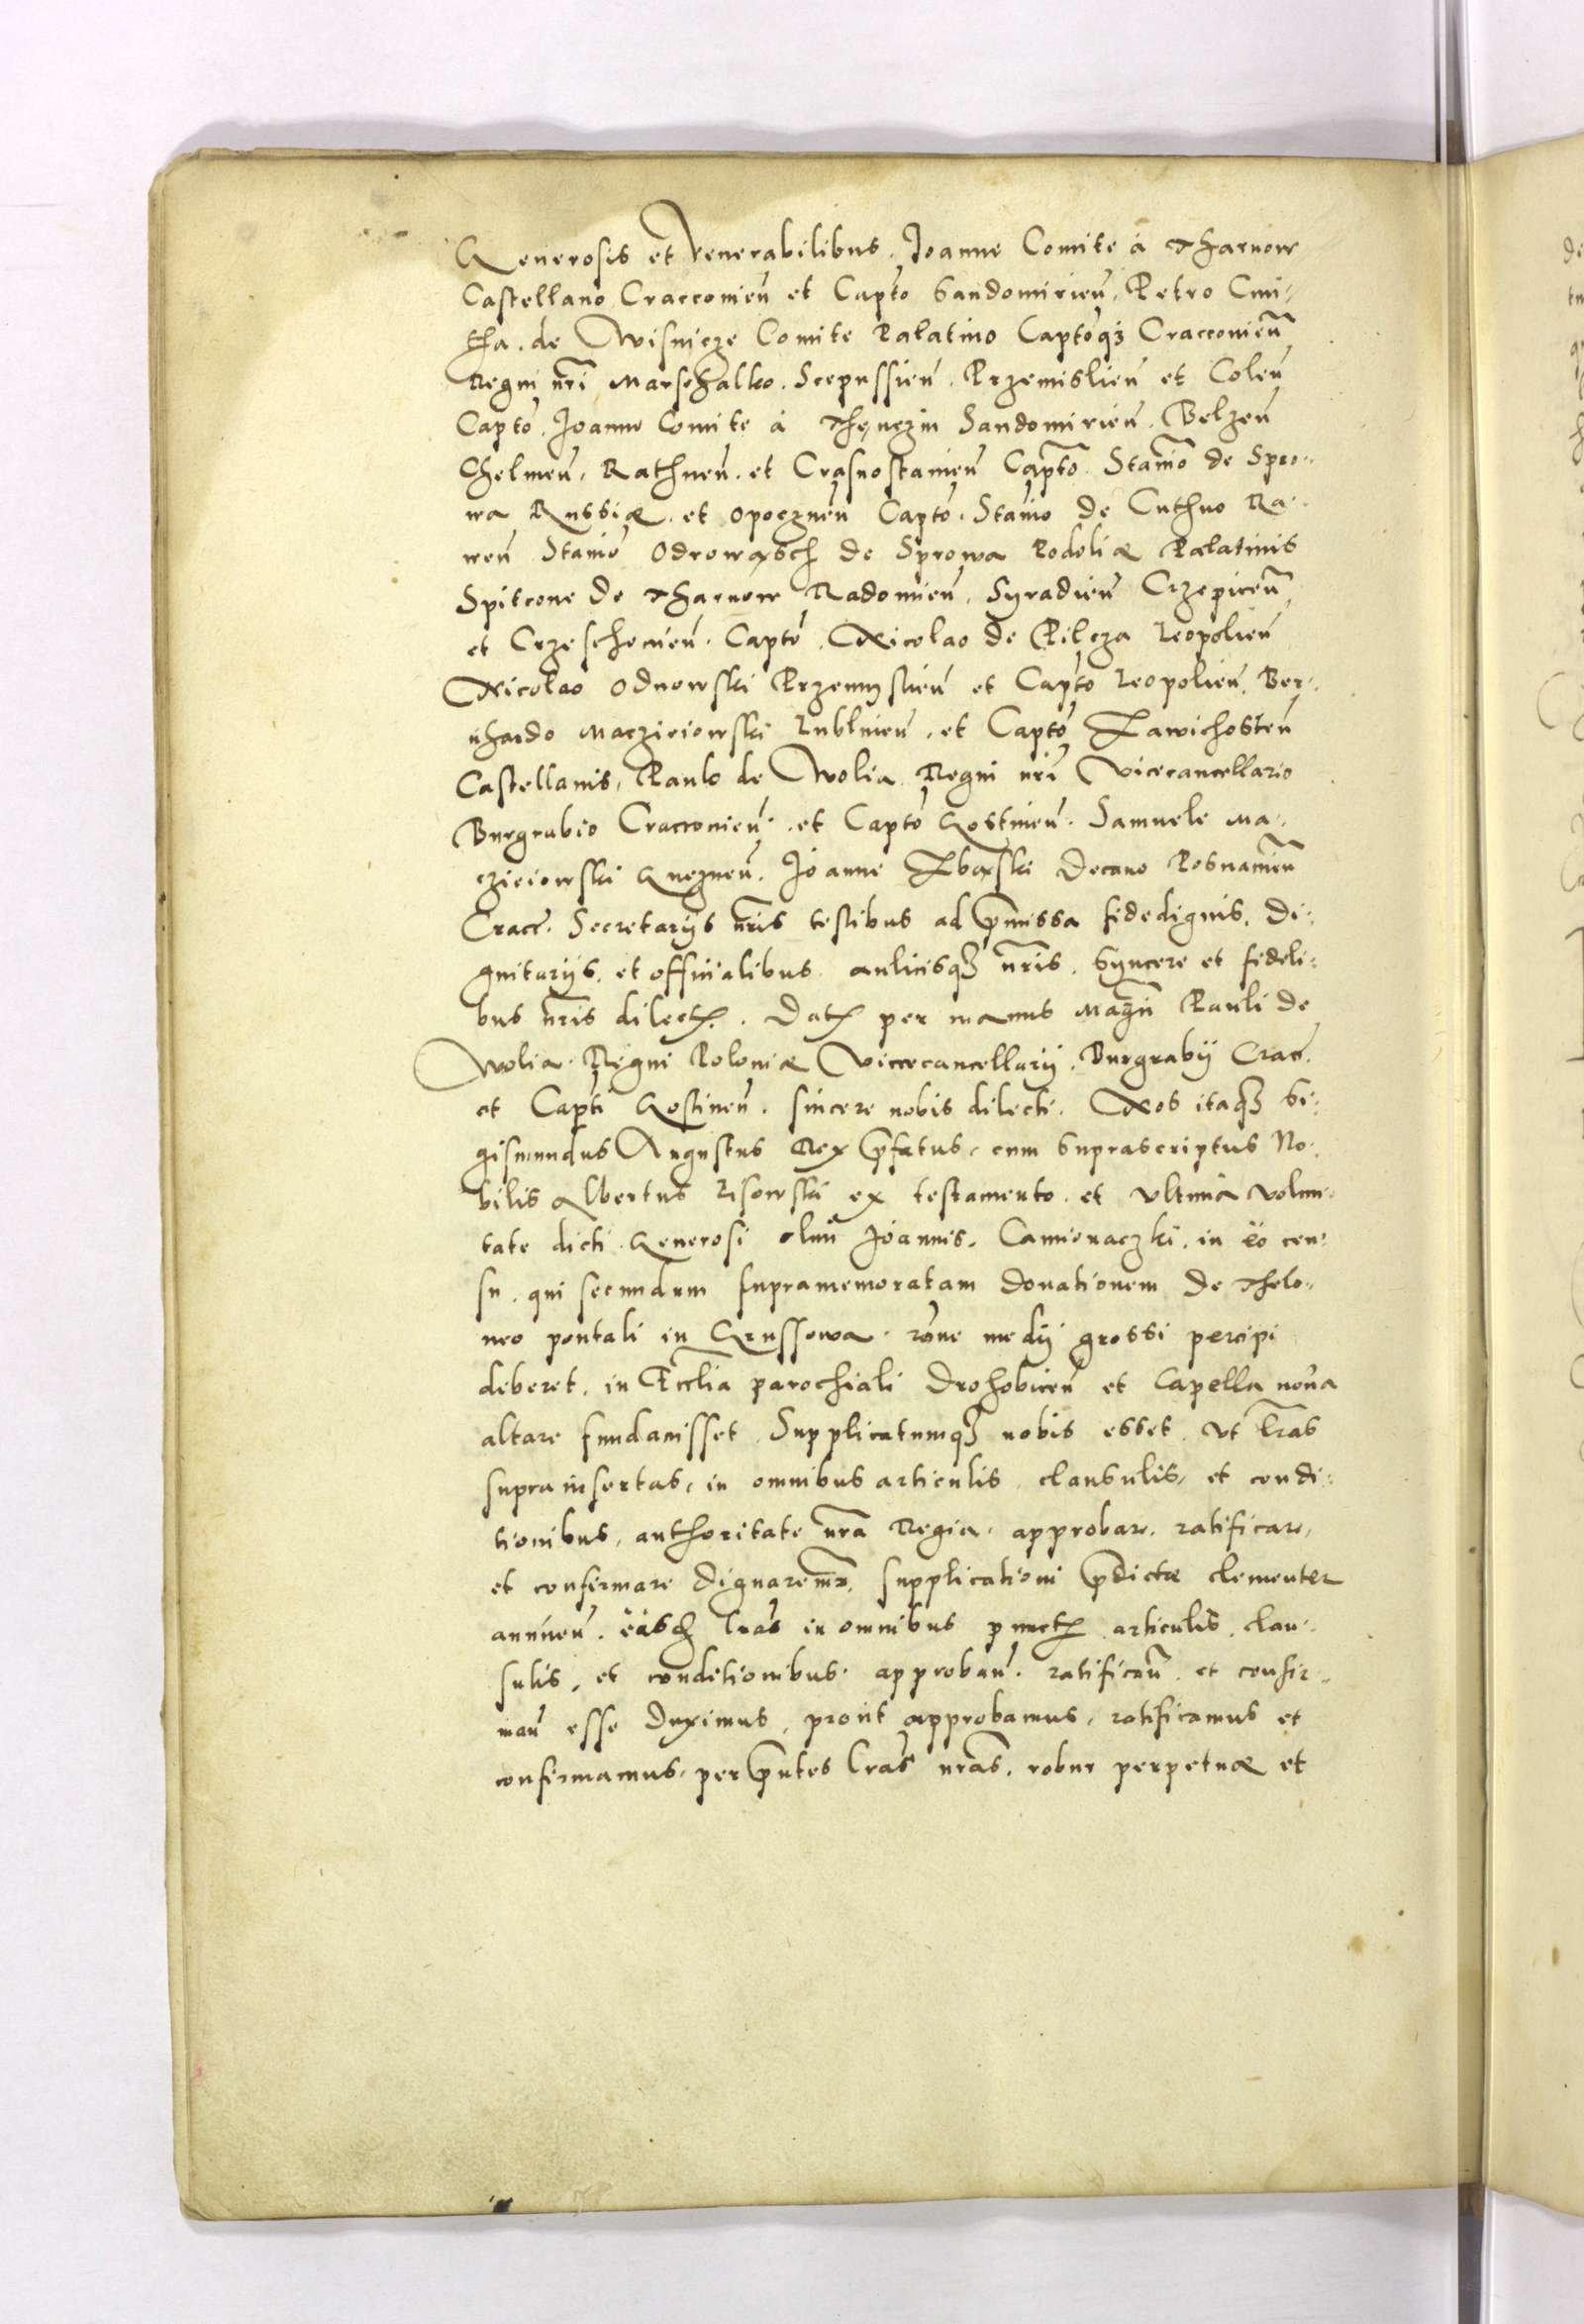 Generosis et Venerabilibus. Joanne Comite á Tharnow
Castellano Cracconieñ et Capto Sandomirieñ, Petro Cmi-
tha. de Wisnicze Comite Palatino Captoqз Cracconieñ
Regni nri Marschalko. Scepussieñ. Przemislieñ et Coleñ
Capto. Joanne Comite á Thęnczin Sandomirieñ. Belzeñ
Chelmeñ, Rathneñ. et Crasnostanieñ Capto. Stanio de Spro-
wa Russiæ. et Opoczneñ Capto. Stanio de Cuthno Ra-
weñ Stanio Odrowąsch de Sprowa Podoliæ Palatinis
Spitcone de Tharnow Radomieñ, Syradieñ Crzepiceñ
et Crzeschowieñ. Capto. Nicolao de Pilcza Leopolieñ
Nicolao Odnowski Przemyslieñ et Capto Leopolieñ. Ber-
nhardo Maczieiowski Lublineñ. et Capto Zawichosteñ
Castellanis, Paulo de Wolia Regni nri Vicecancellario
Burgrabio Cracconieñ. et Capto Gostineñ. Samuele Ma-
czieiowski Gnezneñ. Joanne Zbąski Decano Posnanieñ
Cracc. Secretarijs nris testibus ad pmissa fidedignis, di-
gnitarijs. et officialibus aulicisqз nris. Syncere et fideli-
bus nris dilectꝭ. Datꝭ per manus Magn Pauli de
Wolia. Regni Poloniæ Vicecancellarij. Burgrabij Crac.
et Capti Gostineñ. sincere nobis dilecti. Nos itaqз Si-
gismundus Augustus Rex pfatus, cum suprascriptus No-
bilis Albertus Lisowski ex testamento. et vltima volun-
tate dicti Generosi olim Joannis. Camionaczki. in eo cen-
su. qui secundum supramemoratam donationem de Thelo-
neo pontali in Grussowa. rone medij grossi percipi
deberet. in Ecclia parochiali Drohobiceñ et Capella noua
altare fundauisset. Supplicatumqз nobis esset. vt lras
suprainsertas, in omnibus articulis, clausulis, et condi-
tionibus, authoritate nra Regia. approbare. ratificare,
et confirmare dignaremr, supplicationi pdictæ clementer
annueñ. easdꝫ lras in omnibus punctꝭ articulis, clau-
sulis, et conditionibus. approbañ. ratificañ. et confir-
mañ esse duximus, prout approbamus, ratificamus et
confirmamus. per pntes lras nras. robur perpetuæ et